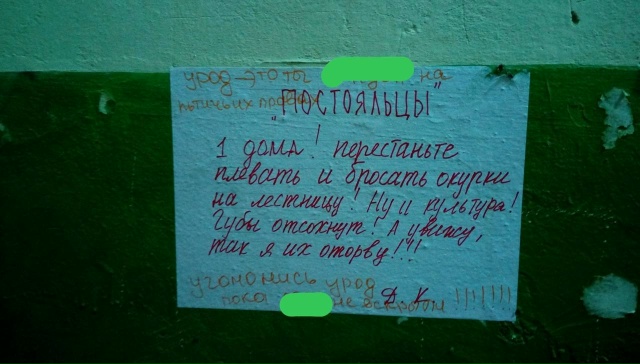 урод-это ты на
птичьих правах
"ПОСТОЯЛЬЦЫ"
1 дома! перестаньте
плевать и бросать окурки
на лестницу! Ну и культура!
Губы отсохнут! А увижу,
так я их оторву!!!
угомонись урод
пока не вскрыли !!!!!!!
Д К